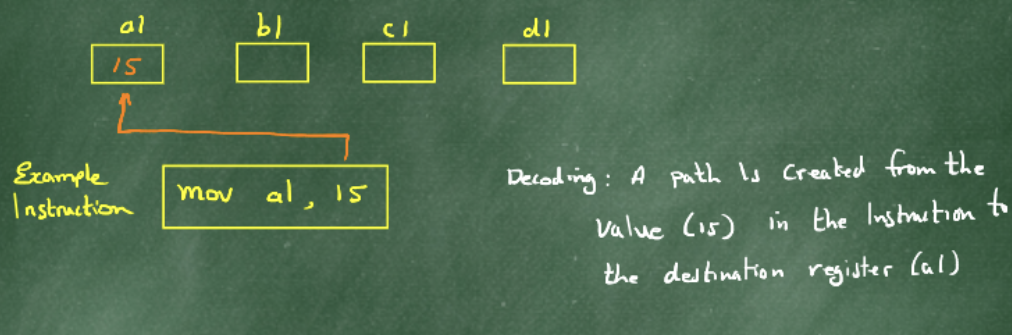 al bl cl dl
15
Example
Instruction
mov al, 15
Decoding: A path is created from the
value (15) in the Instruction to
the destination register (al)